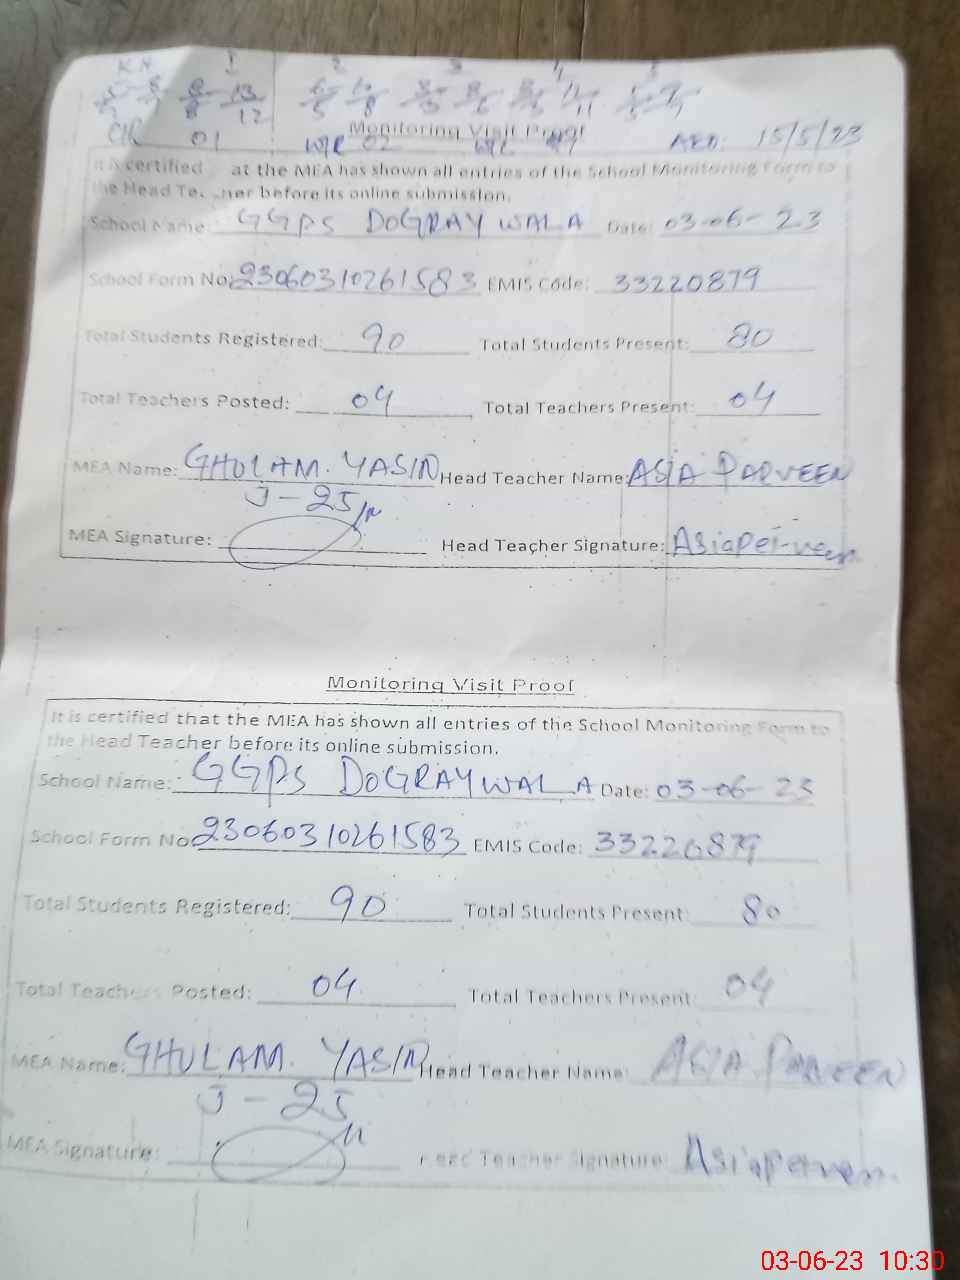 K.A 1 2 3 4 5
CR 01 WR 02 Monitoring Visit Proof AEO: 15/5/23
It is certified at the MEA has shown all entries of the School Monitoring Form to
the Head Te. .her before its online submission.
School Name: GGPS DOGRAY WALA Date: 03-06-23
School Form No: 23060310261583 EMIS Code: 33220879
Total Students Registered: 90 Total Students Present: 80
Total Teachers Posted: 04 Total Teachers Present: 04
MEA Name: GHULAM. YASIN Head Teacher Name: ASIA PARVEEN
J-25
MEA Signature: Head Teacher Signature: Asiaperveen
Monitoring Visit Proof
It is certified that the MEA has shown all entries of the School Monitoring Form to
the Head Teacher before its online submission.
School Name: GGPS DOGRAYWALA Date: 03-06-23
School Form No 23060310261583 EMIS Code: 33220879
Total Students Registered: 90 Total Students Present: 80
Total Teachers Posted: 04 Total Teachers Present: 04
MEA Name: GHULAM. YASIN Head Teacher Name: ASIA PARVEEN
J-25
MEA Signature: Head Teacher Signature: Asiaperveen.
03-06-23 10:30